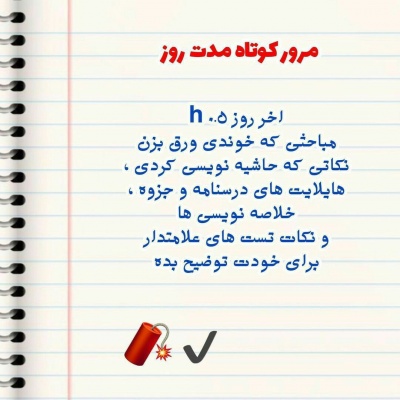 مرور کوتاه مدت روز
اخر روز ۰.۵ h
مباحثی که خوندی ورق بزن
نکاتی که حاشیه نویسی کردی ،
هایلایت های درسنامه و جزوه ،
خلاصه نویسی ها
و نکات تست های علامتدار
برای خودت توضیح بده